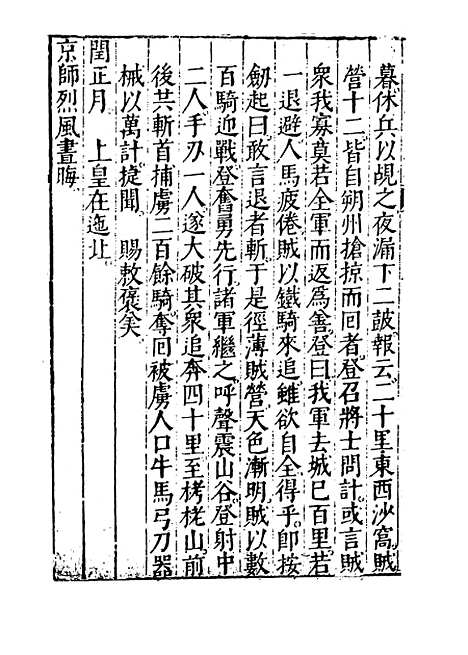 暮休兵以覘之夜漏下二皷報云二十里東西沙窩賊
營十二皆自朔州搶掠而回者登召將士問計或言賊
衆我寡莫若全軍而返爲善登曰我軍去城巳百里若
一退避人馬疲倦賊以鐵騎來追雖欲自全得乎即按
劒起曰敢言退者斬于是徑薄賊營天色漸明賊以數
百騎迎戰登奮勇先行諸軍繼之呼聲震山谷登射中
二人手刃一人遂大破其衆追奔四十里至栲栳山前
後共斬首捕虜二百餘騎奪回被虜人口牛馬弓刀器
械以萬計㨗聞　賜敕褒矣
閏正月　上皇在迤北
京師烈風晝晦